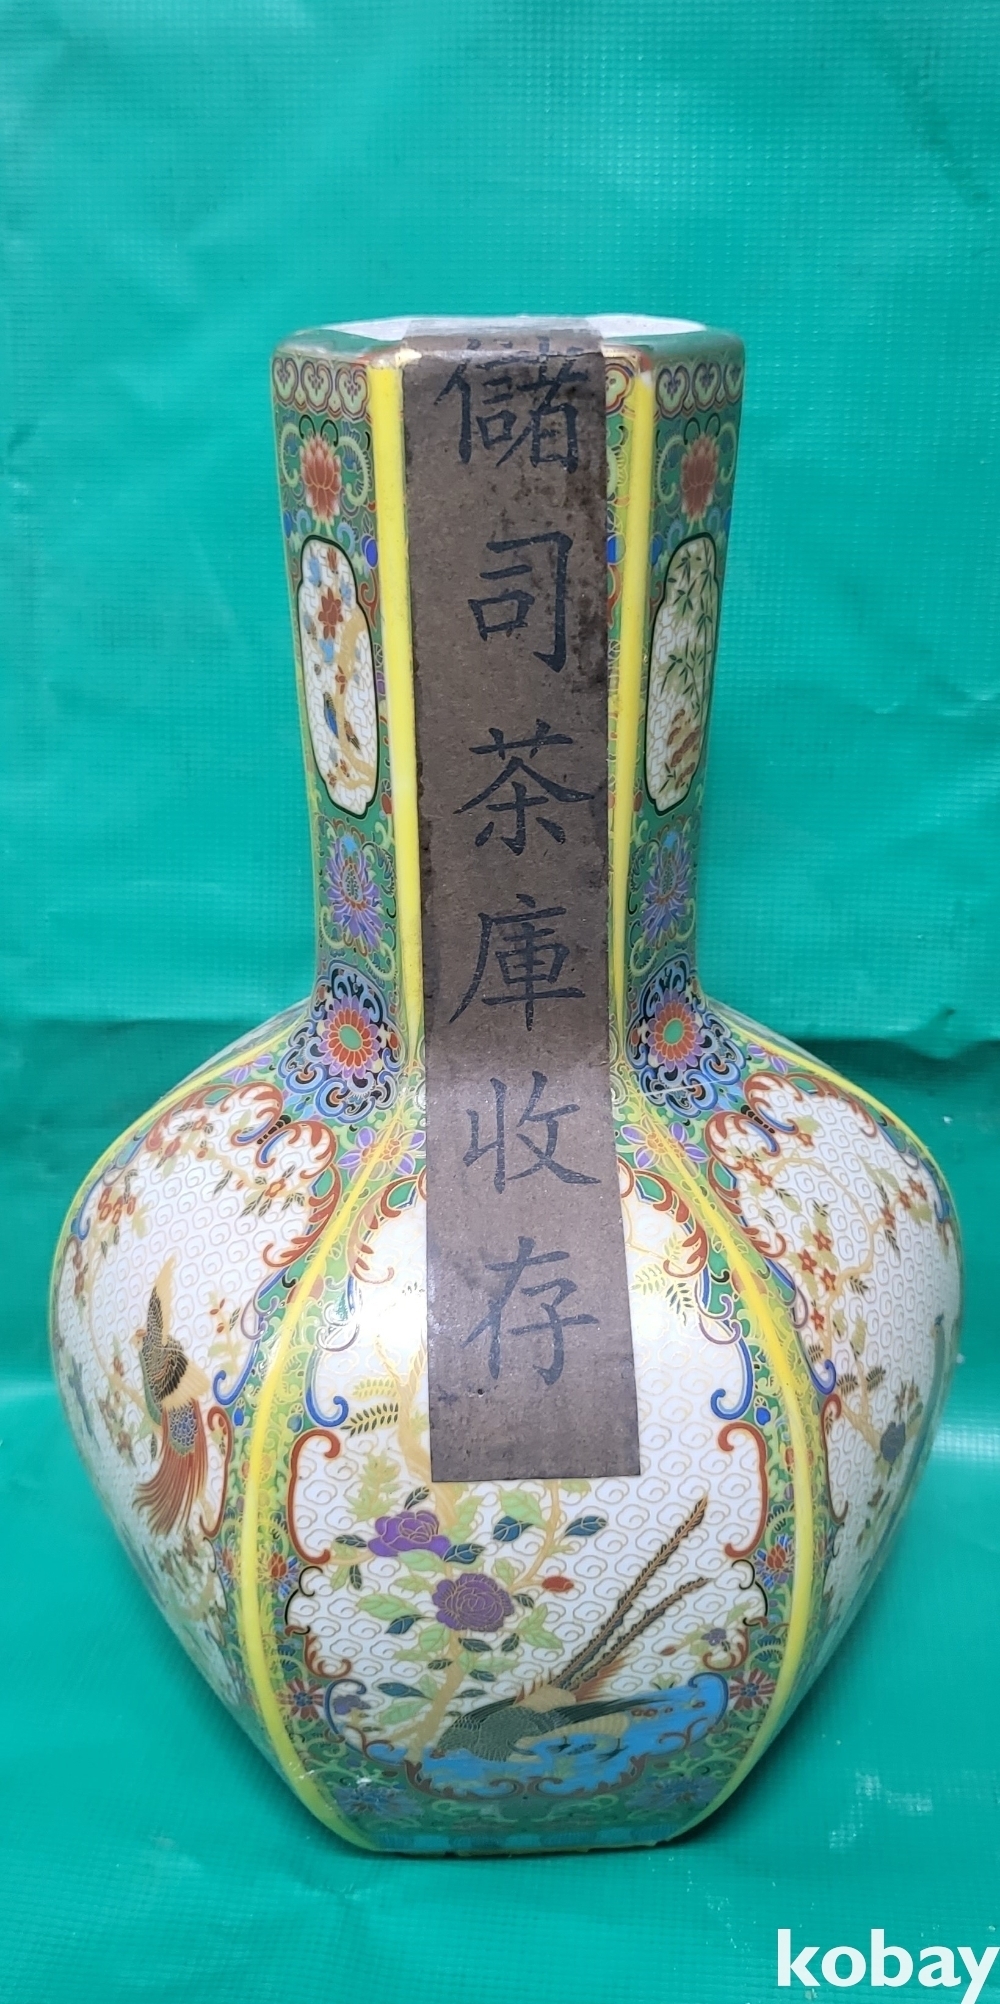 儲司茶庫收存
kobay